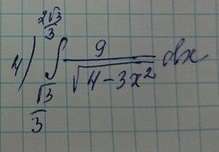 4) ∫_{√3/3}^{2√3/3} 9/√(4-3x²) dx